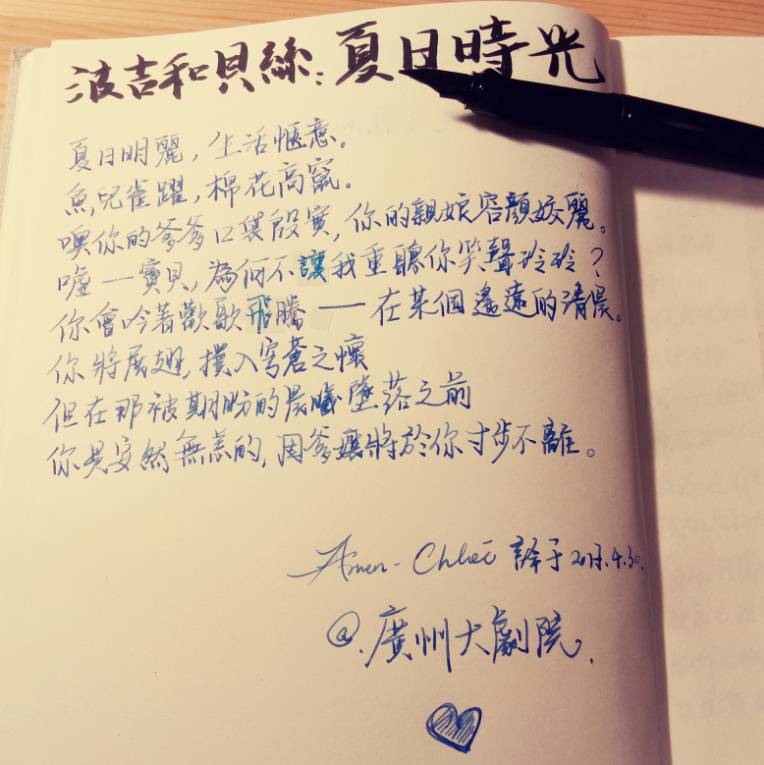 波吉和貝絲：夏日時光
夏日明麗，生活愜意。
魚兒雀躍，棉花高竄。
噢你的爹爹口袋殷實，你的親娘容顏姣麗。
喔一寶貝，為何不讓我重聽你笑聲玲玲？
你會吟著歡歌飛騰——在某個遙遠的清晨。
你將展翅，撲入穹蒼之懷
但在那被期盼的晨曦墜落之前
你是安然無恙的，因爹孃將於你寸步不離。
Amen-Chloé 譯于 2017.4.30.
@.廣州大劇院.